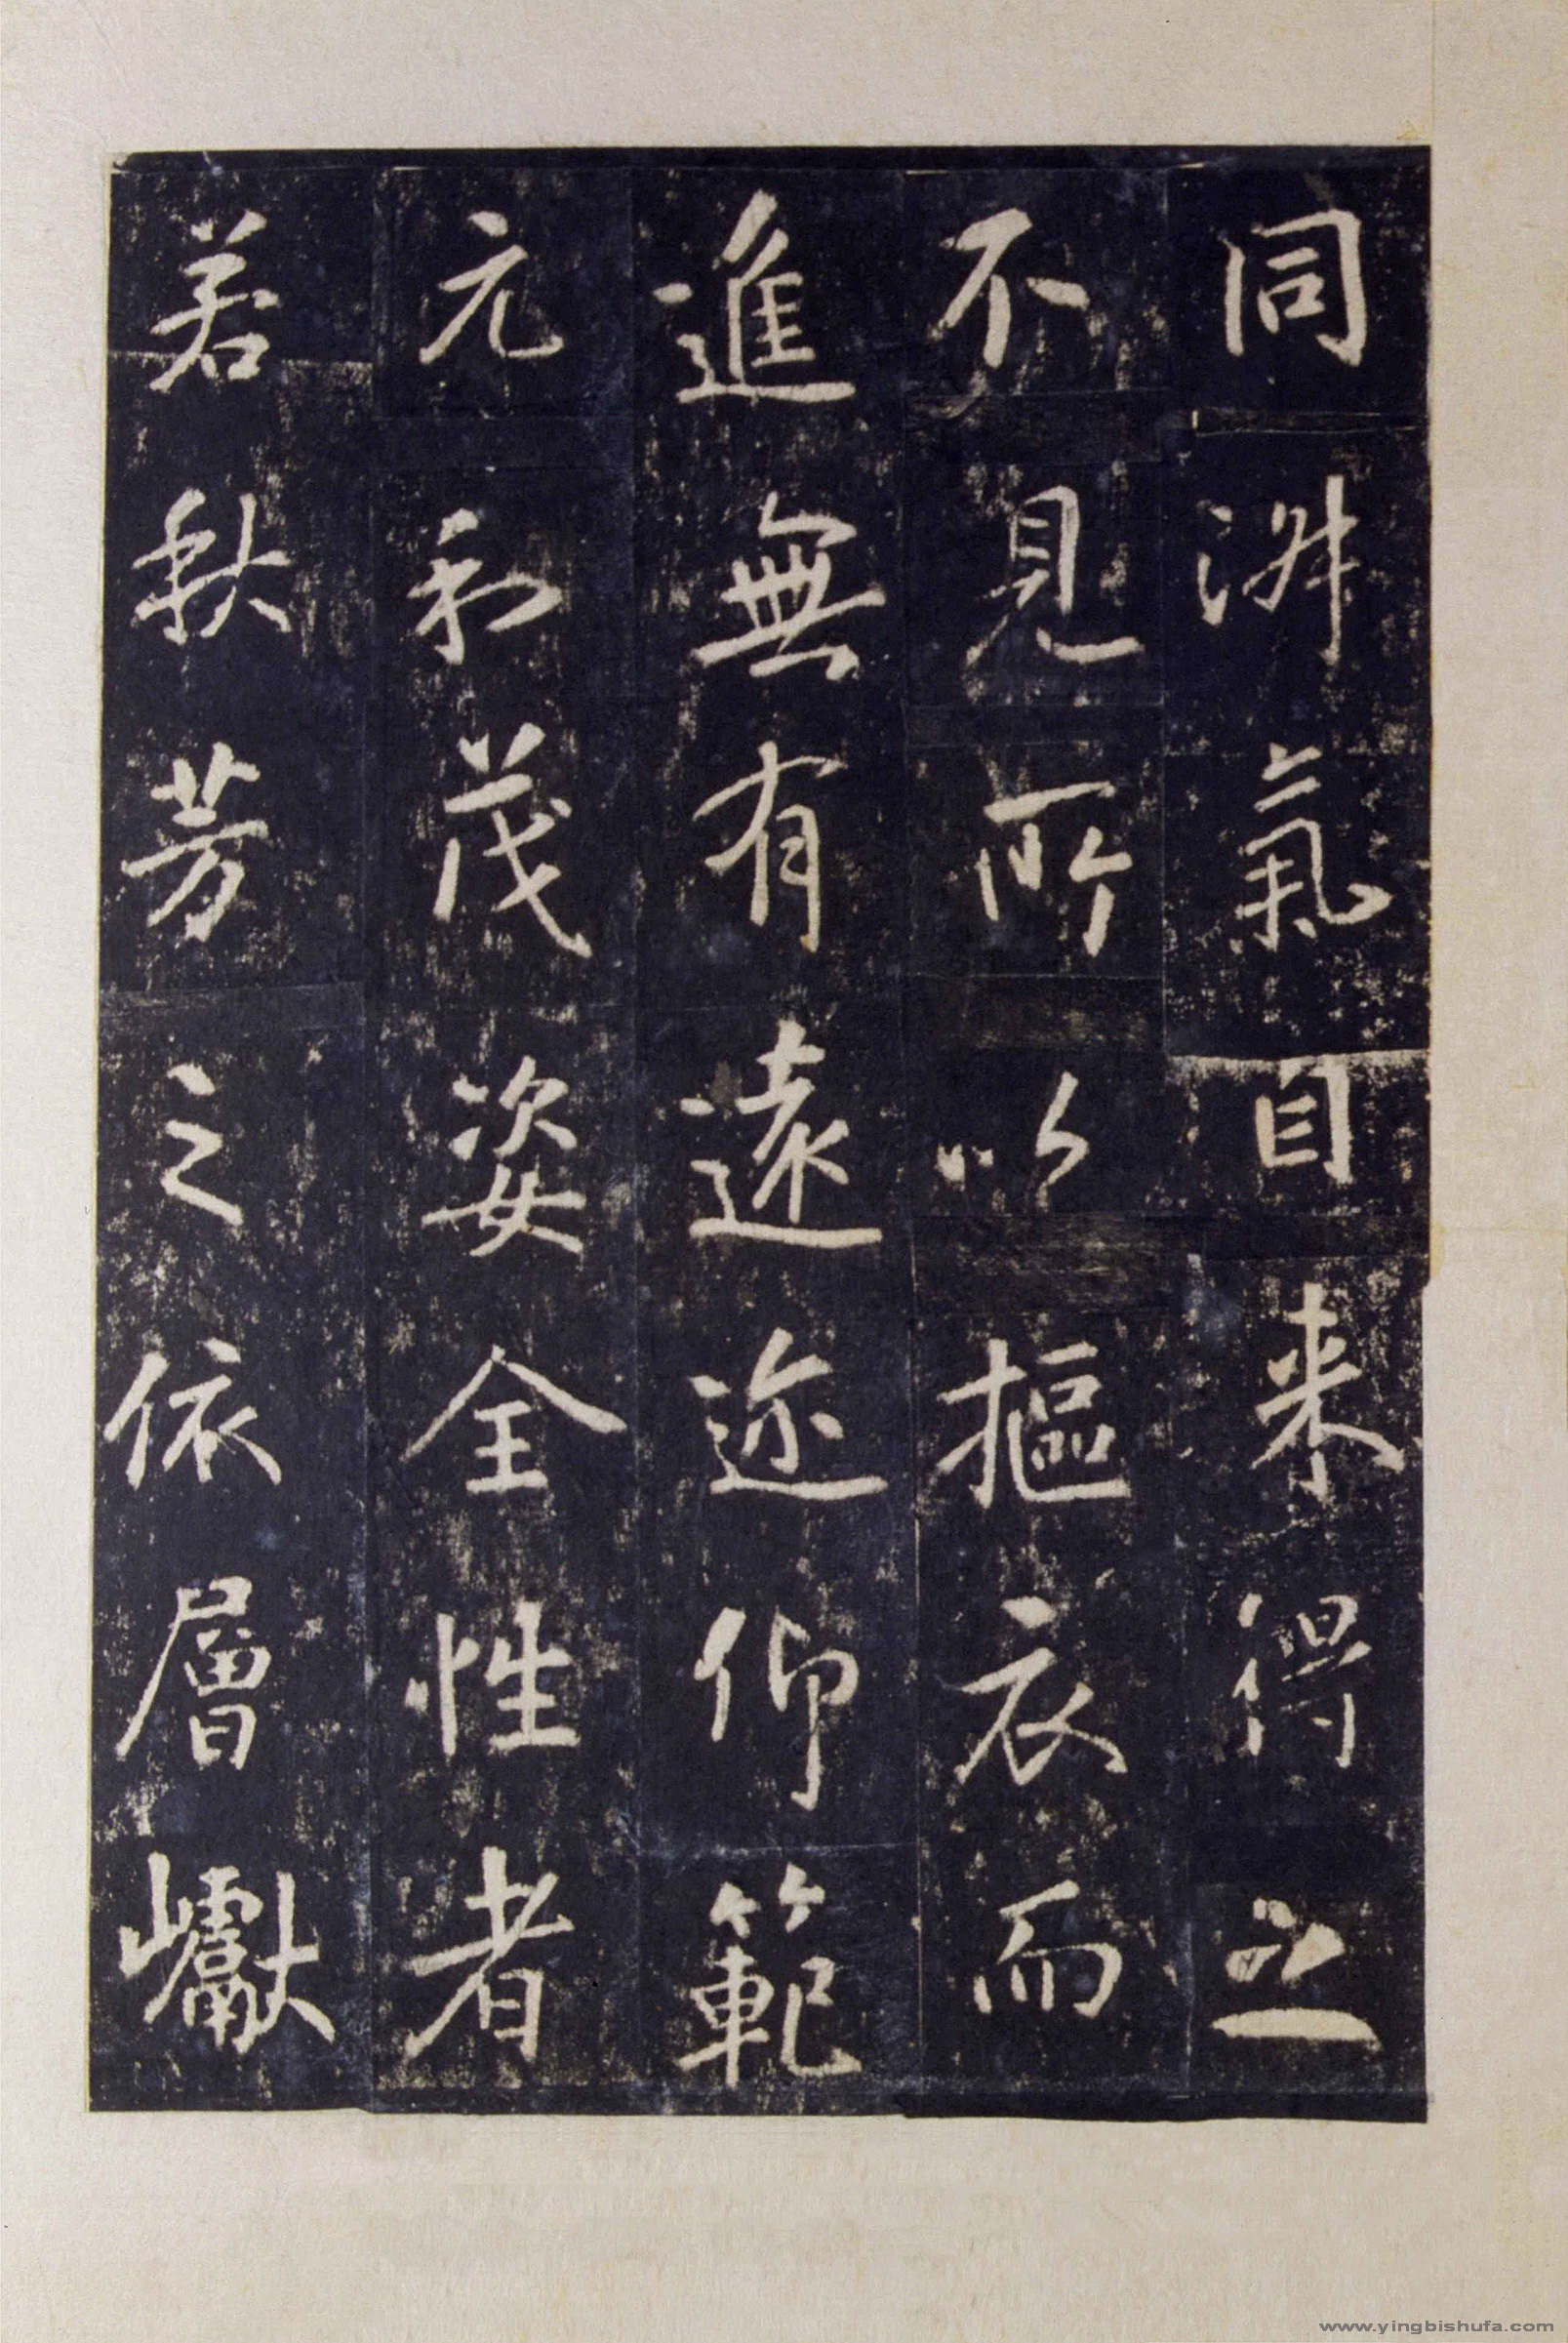 同氣自来得之
不見所以摳衣而
進無有遠迩仰範
元和茂姿全性者
若秋芳之依層巘
www.yingbishufa.com